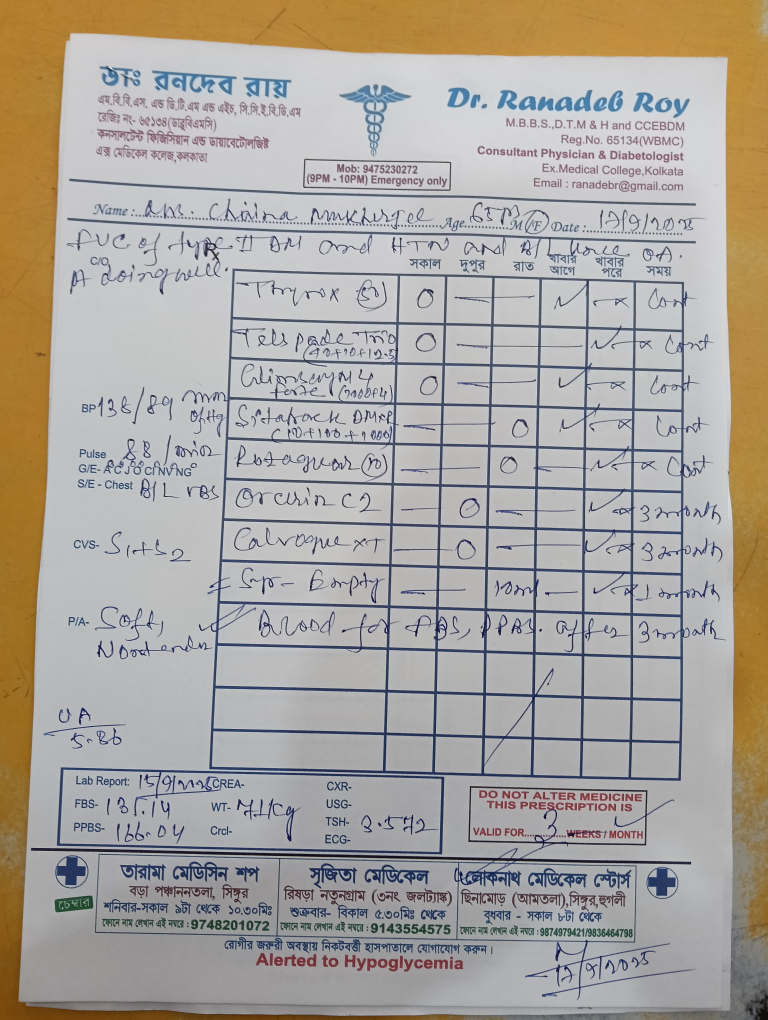 ডাঃ রনদেব রায়
এম.বি.বি.এস, এন্ড ডি.টি.এম এন্ড এইচ, সি.সি.ই.বি.ডি.এম
রেজিঃ নং- ৬৫১৩৪(ডাব্লুবিএমসি)
কনসালটেন্ট ফিজিসিয়ান এন্ড ডায়াবেটোলজিষ্ট
এক্স মেডিকেল কলেজ,কলকাতা
Mob: 9475230272
(9PM - 10PM) Emergency only
Dr. Ranadeb Roy
M.B.B.S.,D.T.M & H and CCEBDM
Reg.No. 65134(WBMC)
Consultant Physician & Diabetologist
Ex.Medical College,Kolkata
Email : ranadebr@gmail.com
Name : Chaina Mukherjee Age 65 M/F Date : 17/9/2025
FUC of type II DM and HTN and B/L knee OA.
C/O
A doing well.
Rx
সকাল দুপুর রাত খাবার আগে খাবার পরে সময়
Thyrox (50) O — — ✓ — x Cont
Telspade Trio O — — — ✓ x Cont
(40+10+12.5)
O — — ✓ — x Cont
forte
DMXR — — O ✓ — x Cont
(10+100+1000)
(10) — — O — ✓ x Cont
C2 — O — — ✓ x 3 month
XT — O — — ✓ x 3 month
Syr - Empty — — 10ml — ✓ x 1 month
Blood for FBS, PPBS. after 3 month
BP 138/89 mm of Hg
Pulse 88 /min
G/E- A°C°J°O°CI°N°V°NG°
S/E - Chest B/L VBS
CVS- S1+S2
P/A- Soft,
Nontender
UA
5.86
Lab Report: 15/9/2025 CREA- CXR-
FBS- 135.14 WT- 71 kg USG-
PPBS- 166.04 Crcl- TSH- 3.572
ECG-
DO NOT ALTER MEDICINE
THIS PRESCRIPTION IS
VALID FOR 3 WEEKS / MONTH
চেম্বার
তারামা মেডিসিন শপ
বড়া পঞ্চাননতলা, সিঙ্গুর
শনিবার-সকাল ৯টা থেকে ১০.৩০মিঃ
ফোনে নাম লেখান এই নম্বরে : 9748201072
সৃজিতা মেডিকেল
রিষড়া নতুনগ্রাম (৩নং জলট্যাঙ্ক)
শুক্রবার- বিকাল ৫.৩০মিঃ থেকে
ফোনে নাম লেখান এই নম্বরে : 9143554575
লোকনাথ মেডিকেল স্টোর্স
ছিনামোড় (আমতলা),সিঙ্গুর,হুগলী
বুধবার - সকাল ৮টা থেকে
ফোনে নাম লেখান এই নম্বরে : 9874979421/9836464798
রোগীর জরুরী অবস্থায় নিকটবর্ত্তী হাসপাতালে যোগাযোগ করুন।
Alerted to Hypoglycemia
17/9/2025